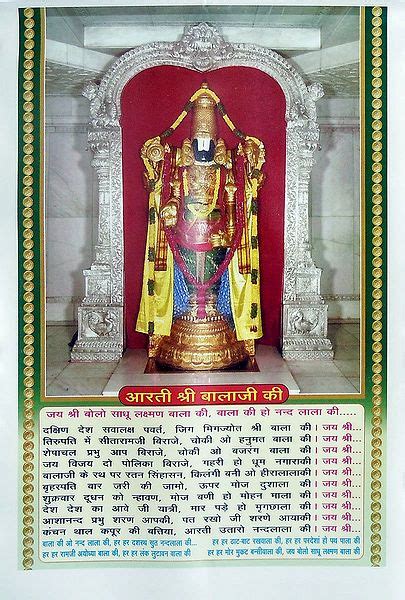 आरती श्री बालाजी की
जय श्री बोलो साधू लक्ष्मण बाला की, बाला की हो नन्द लाला की.....
दक्षिण देश सवालक्ष पवतं, जिग मिगज्योत श्री बाला की । जय श्री...
तिरुपति में सीतारामजी बिराजे, चोकी ओ हनुमत बाला की । जय श्री...
शेषाचल प्रभु आप बिराजे, चोकी ओ बजरंग बाला की । जय श्री...
जय विजय दो पोलिका बिराजे, गहरी हो धूम नगाराकी । जय श्री...
बालाजी के रथ पर रतन सिंहासन, किलंगी बनी ओ हीरालालाकी । जय श्री...
बृहस्पति बार जरी की जामो, ऊपर मोज दुशाला की । जय श्री...
शुक्रवार दूधन को न्हावण, मोज बणी हो मोहन माला की । जय श्री...
देश देश का आवे जी यात्री, मार पड़े हो मृगछाला की । जय श्री...
आशानन्द प्रभु शरण आपकी, पत रखो जी शरणे आयाकी । जय श्री...
कंचन थाल कपूर की बत्तिया, आरती उतारो नन्दलाला की । जय श्री...
बाला की ओ नन्द लाला की, हर हर दशरथ सुत नन्दलाला की... हर हर ठाट-बाट रखवाला की, हर हर परदेशां हो पथ पाला की
हर हर रामजी अयोध्या बाला की, हर हर लंक लुटावन बाला की हर हर मोर मुकट बन्सीवाला की, जय बोलो साधू लक्ष्मण बाला की